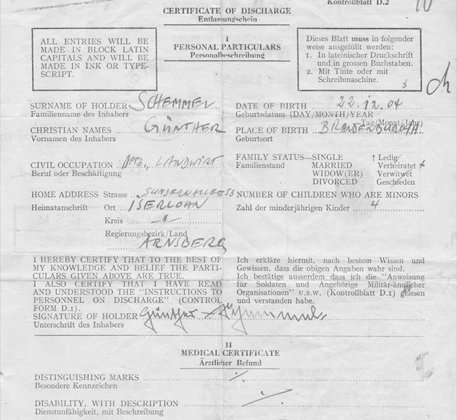 Kontrollblatt D.2
CERTIFICATE OF DISCHARGE
Entlassungschein
ALL ENTRIES WILL BE
MADE IN BLOCK LATIN
CAPITALS AND WILL BE
MADE IN INK OR TYPE-
SCRIPT.
I
PERSONAL PARTICULARS
Personalbeschreibung
Dieses Blatt muss in folgender
weise ausgefüllt werden:
1. In lateinischer Druckschrift
und in grossen Buchstaben.
2. Mit Tinte oder mit
Schreibmaschine.
SURNAME OF HOLDER SCHEMMEL
Familienname des Inhabers
CHRISTIAN NAMES GÜNTHER
Vornamen des Inhabers
CIVIL OCCUPATION LANDWIRT
Beruf oder Beschäftigung
HOME ADDRESS Strasse
Heimatanschrift Ort ISERLOHN
Kreis
Regierungsbezirk/Land
ARNSBERG
DATE OF BIRTH 22.12.04
Geburtsdatum (DAY/MONTH/YEAR)
Tag/Monat/Jahr)
PLACE OF BIRTH
Geburtsort
FAMILY STATUS—SINGLE † Ledig
Familienstand MARRIED Verheiratet
WIDOW(ER) Verwitwet
DIVORCED Geschieden
NUMBER OF CHILDREN WHO ARE MINORS
Zahl der minderjährigen Kinder 4
I HEREBY CERTIFY THAT TO THE BEST OF
MY KNOWLEDGE AND BELIEF THE PARTI-
CULARS GIVEN ABOVE ARE TRUE.
I ALSO CERTIFY THAT I HAVE READ
AND UNDERSTOOD THE "INSTRUCTIONS TO
PERSONNEL ON DISCHARGE" (CONTROL
FORM D.1).
SIGNATURE OF HOLDER Günther
Unterschrift des Inhabers
Ich erkläre hiermit, nach bestem Wissen und
Gewissen, dass die obigen Angaben wahr sind.
Ich bestätige ausserdem dass ich die "Anweisung
für Soldaten und Angehörige Militär-ähnlicher
Organisationen" u.s.w. (Kontrollblatt D.1) gelesen
und verstanden habe.
II
MEDICAL CERTIFICATE
Ärztlicher Befund
DISTINGUISHING MARKS
Besondere Kennzeichen
DISABILITY, WITH DESCRIPTION
Dienstunfähigkeit, mit Beschreibung